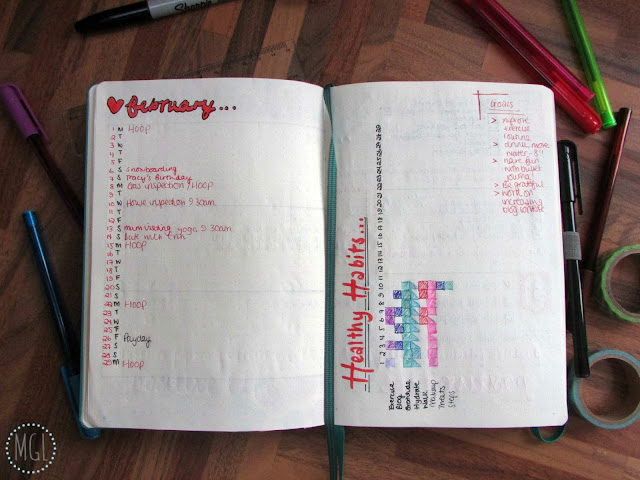 Sharpie
february...
1 M HOOP
2 T
3 W
4 T
5 F
6 S snowboarding
7 S Tracy's Birthday
8 M Gas inspection / HOOP
9 T
10 W House inspection 9.30am
11 T
12 F
13 S mum visiting yoga 9.30am
14 S
15 M HOOP
16 T
17 W
18 T
19 F
20 S
21 S
22 M HOOP
23 T
24 W
25 T
26 F Payday
S
28 S
29 M HOOP
Healthy Habits...
1 2 3 4 5 6 7 8 9 10 11 12 13 14 15 16 17 18 19 20 21 22 23 24 25 26 27 28 29
Exercise
Blog
Hydrate
Walk
Makeup
Treats
Steps
GOALS
> improve
exercise
routine
> drink more
water
> have fun
with bullet
journal!
> Be grateful
> work on
increasing
blog
MGL